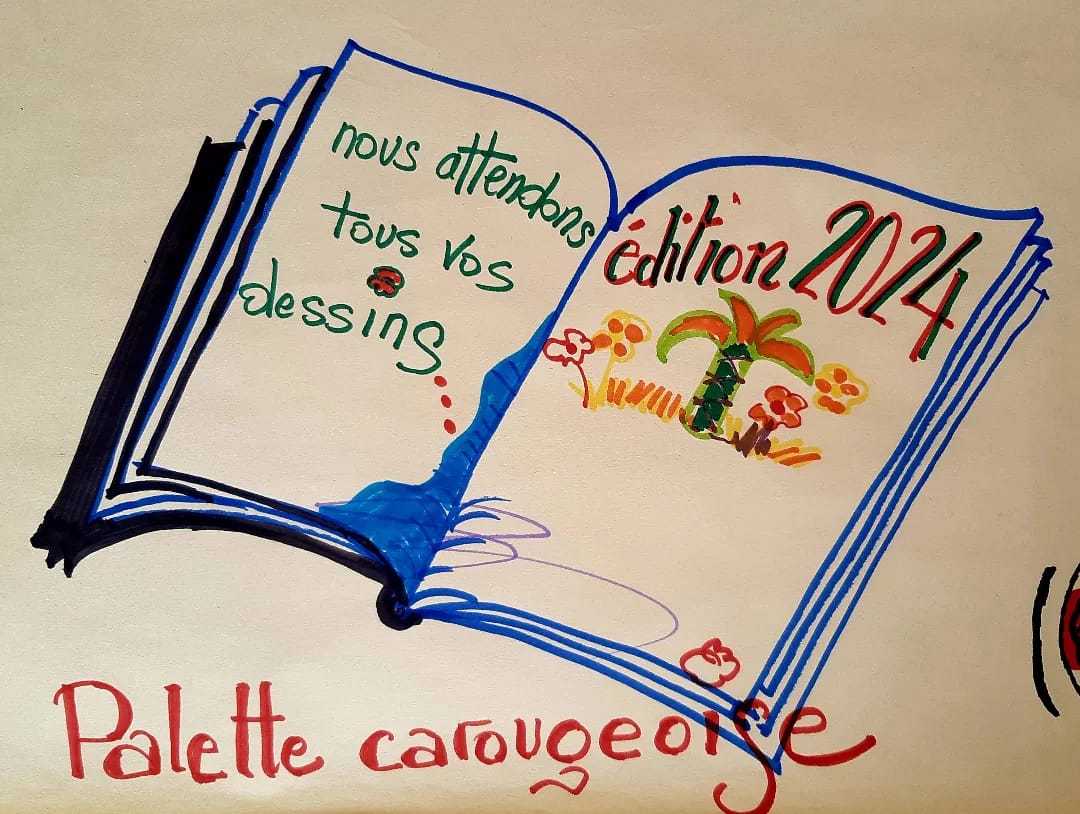 nous attendons
tous vos
dessins
édition 2024
Palette carougeoise